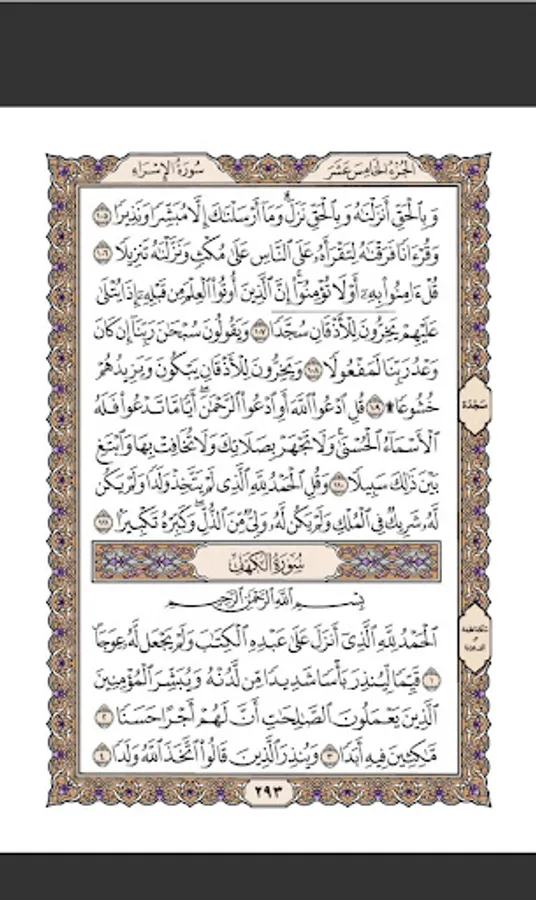 الجزء الخامس عشر
سورة الإسراء
وَبِٱلْحَقِّ أَنزَلْنَٰهُ وَبِٱلْحَقِّ نَزَلَ ۗ وَمَآ أَرْسَلْنَٰكَ إِلَّا مُبَشِّرًا وَنَذِيرًا ١٠٥
وَقُرْءَانًا فَرَقْنَٰهُ لِتَقْرَأَهُۥ عَلَى ٱلنَّاسِ عَلَىٰ مُكْثٍ وَنَزَّلْنَٰهُ تَنزِيلًا ١٠٦
قُلْ ءَامِنُوا۟ بِهِۦٓ أَوْ لَا تُؤْمِنُوٓا۟ ۚ إِنَّ ٱلَّذِينَ أُوتُوا۟ ٱلْعِلْمَ مِن قَبْلِهِۦٓ إِذَا يُتْلَىٰ
عَلَيْهِمْ يَخِرُّونَ لِلْأَذْقَانِ سُجَّدًا ١٠٧ وَيَقُولُونَ سُبْحَٰنَ رَبِّنَآ إِن كَانَ
وَعْدُ رَبِّنَا لَمَفْعُولًا ١٠٨ وَيَخِرُّونَ لِلْأَذْقَانِ يَبْكُونَ وَيَزِيدُهُمْ
خُشُوعًا ۩ ١٠٩ قُلِ ٱدْعُوا۟ ٱللَّهَ أَوِ ٱدْعُوا۟ ٱلرَّحْمَٰنَ ۖ أَيًّا مَّا تَدْعُوا۟ فَلَهُ
ٱلْأَسْمَآءُ ٱلْحُسْنَىٰ ۚ وَلَا تَجْهَرْ بِصَلَاتِكَ وَلَا تُخَافِتْ بِهَا وَٱبْتَغِ
بَيْنَ ذَٰلِكَ سَبِيلًا ١١٠ وَقُلِ ٱلْحَمْدُ لِلَّهِ ٱلَّذِى لَمْ يَتَّخِذْ وَلَدًا وَلَمْ يَكُن
لَّهُۥ شَرِيكٌ فِى ٱلْمُلْكِ وَلَمْ يَكُن لَّهُۥ وَلِىٌّ مِّنَ ٱلذُّلِّ ۖ وَكَبِّرْهُ تَكْبِيرًۢا ١١١
سورة الكهف
بِسْمِ ٱللَّهِ ٱلرَّحْمَٰنِ ٱلرَّحِيمِ
ٱلْحَمْدُ لِلَّهِ ٱلَّذِىٓ أَنزَلَ عَلَىٰ عَبْدِهِ ٱلْكِتَٰبَ وَلَمْ يَجْعَل لَّهُۥ عِوَجَا ۜ
١ قَيِّمًا لِّيُنذِرَ بَأْسًا شَدِيدًا مِّن لَّدُنْهُ وَيُبَشِّرَ ٱلْمُؤْمِنِينَ
ٱلَّذِينَ يَعْمَلُونَ ٱلصَّٰلِحَٰتِ أَنَّ لَهُمْ أَجْرًا حَسَنًا ٢
مَّٰكِثِينَ فِيهِ أَبَدًا ٣ وَيُنذِرَ ٱلَّذِينَ قَالُوا۟ ٱتَّخَذَ ٱللَّهُ وَلَدًا ٤
سجدة
٢٩٣